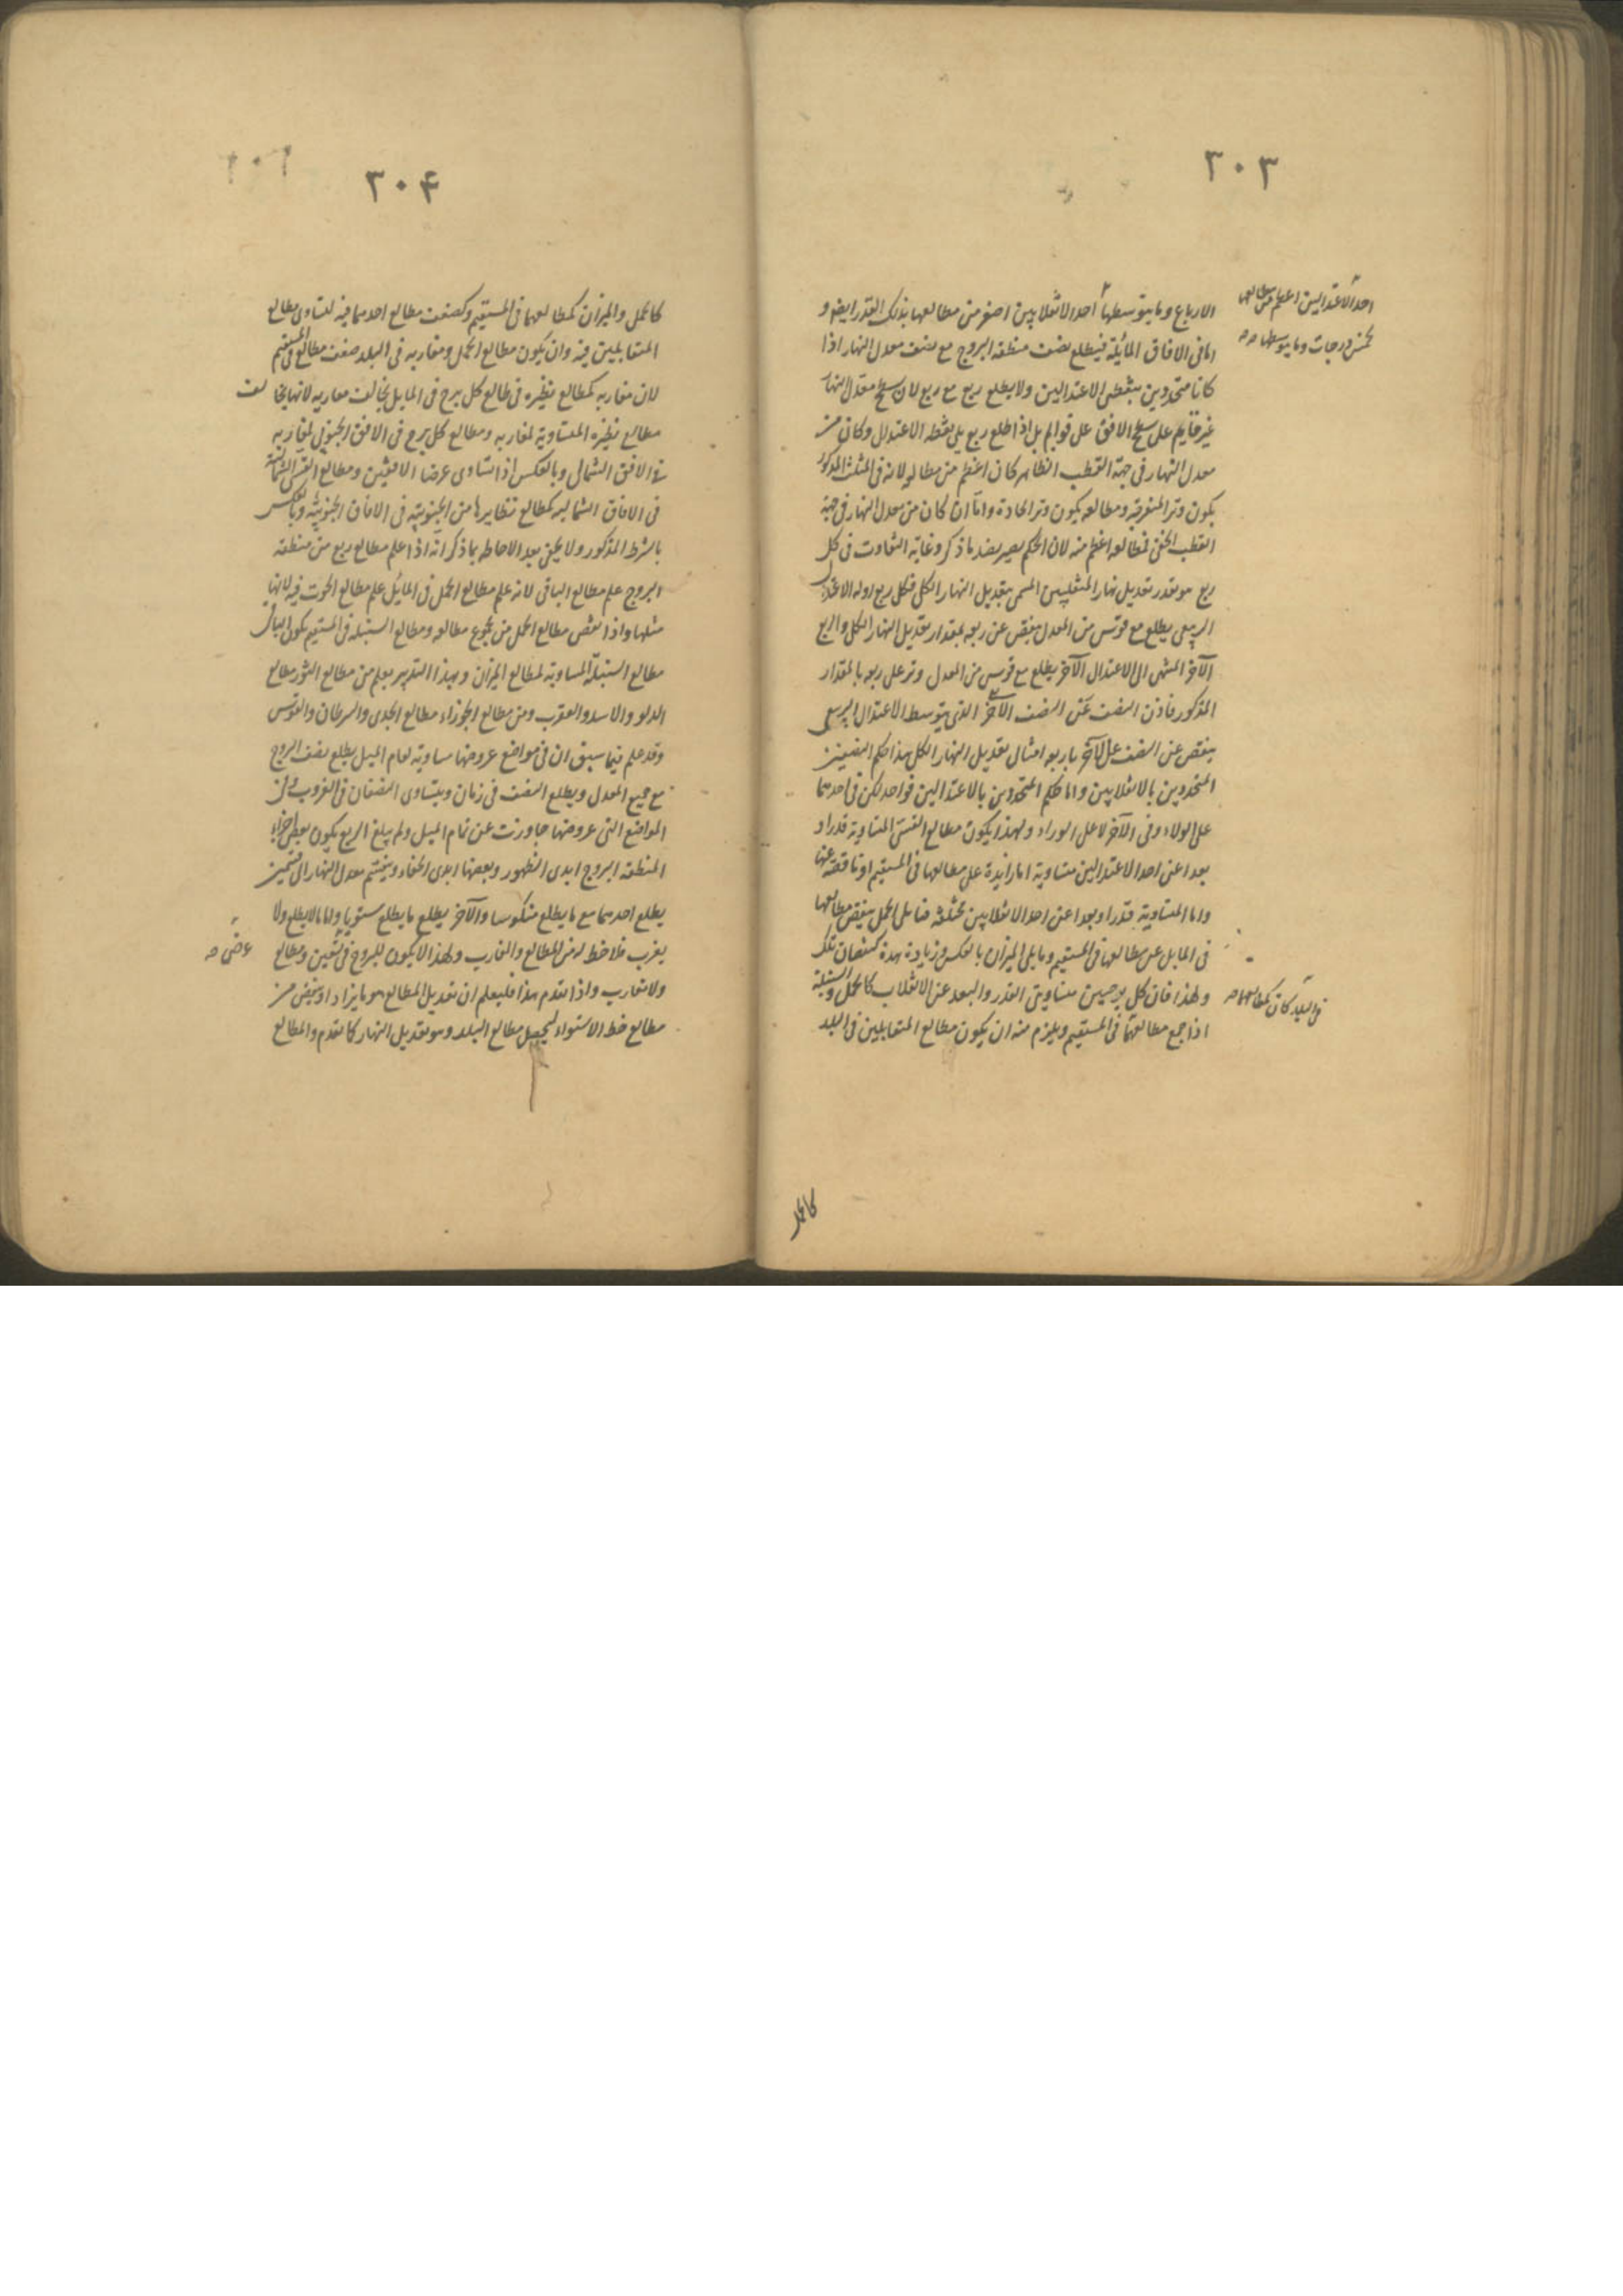 ٣٠٣
الارباع وما يتوسطها احد الانقلابين اصغر من مطالعها بذلك القدر ايضا و
احد الاعتدالين اعظم من مطالعها
بخمس درجات وما يتوسطها صح
اما فى الافاق المائلة فيطلع نصف منطقة البروج مع نصف معدل النهار اذا
كانا محدودين بنقطتى الاعتدالين ولا يطلع ربع مع ربع لان سطح معدل النهار
غير قايم على سطح الافق على قوايم بل اذا طلع ربع يلى نقطه الاعتدال وكان من
معدل النهار فى جهة القطب الظاهر كان اعظم من مطالعه لانه فى المثلث المذكور
يكون وتر المنفرجة ومطالعه يكون وتر الحادة واما ان كان من معدل النهار فى جهة
القطب الخفى فمطالعه اعظم منه لان الحكم يصير بضد ما ذكر وغاية التفاوت فى كل
ربع هو بقدر تعديل نهار المنقلبين المسمى بتعديل النهار الكلى فكل ربع اوله الاعتدال
الربيعى يطلع مع قوس من المعدل ينقص عن ربعه بمقدار تعديل النهار الكلى والربع
الآخر المنتهى الى الاعتدال الآخر يطلع مع قوس من المعدل وتر على ربعه بالمقدار
المذكور فاذن النصف عن النصف الآخر الذى يتوسط الاعتدال الربيعى
ينقص عن النصف على الآخر باربعه امثال تعديل النهار الكلى هذا حكم النصفين
المحدودين بالانقلابين واما حكم المحدودين بالاعتدالين فواحد لكن فى احدهما
على الولاء وفى الآخر لا على الوراء ولهذا يكون مطالع القسى المتساوية قدرا و
بعدا عن احد الاعتدالين متساوية اما زايدة على مطالعها فى المستقيم او ناقصة عنها
واما المتساوية قدرا وبعدا عن احد الانقلابين مختلفة فما يلى الحمل ينقص مطالعها
فى المايل عن مطالعها فى المستقيم وما يلى الميزان بالعكس وزيادة هذه كنقصان تلك
ولهذا فان كل برجين متساويى القدر والبعد عن الانقلاب كالحمل والسنبلة
اذا جمع مطالعهما فى المستقيم ويلزم منه ان يكون مطالع المتقابلين فى البلد
فى البلد كان كمطالعهما صح
كالحمل
٣٠۴
كالحمل والميزان كمطالعهما فى المستقيم وكضعف مطالع احدهما فيه لتساوى مطالع
المتقابلين فيه وان يكون مطالع الحمل ومغاربه فى البلد ضعف مطالع فى المستقيم
لان مغاربه كمطالع نظيره فى طالع كل برج فى المايل يخالف مغاربه لانها يخالف
مطالع نظيره المتساوية لمغاربه ومطالع كل برج فى الافق الجنوبى لمغاربه
فى الافق الشمالى وبالعكس اذا تساوى عرضا الافقين ومطالع القسى الشمالية
فى الافاق الشماليه كمطالع نظايرها من الجنوبية فى الافاق الجنوبية وبالعكس
بالشرط المذكور ولا يخفى بعد الاحاطه بما ذكر انه اذا علم مطالع ربع من منطقه
البروج علم مطالع الباقى لانه علم مطالع الحمل فى المايل علم مطالع الحوت فيه لانها
مثلها واذا نقص مطالع الحمل من مجموع مطالعه ومطالع السنبله فى المستقيم يكون الباقى
مطالع السنبلة المساوية لمطالع الميزان وبهذا التدبير يعلم من مطالع الثور مطالع
الدلو والاسد والعقرب ومن مطالع الجوزاء مطالع الجدى والسرطان والقوس
وقد علم فيما سبق ان فى مواضع عروضها مساوية لتمام الميل يطلع نصف البروج
مع جميع المعدل ويطلع النصف فى زمان ويتساوى النصفان فى الغروب وفى
المواضع التى عروضها جاوزت عن تمام الميل ولم يبلغ الربع يكون بعض اجزاء
المنطقه البروج ابدى الظهور وبعضها ابدى الخفاء وينقسم معدل النهار الى قسمين
يطلع احدهما مع ما يطلع منكوسا والآخر يطلع ما يطلع مستويا واما ما لا يطلع ولا
يغرب فلا حظ له من المطالع والمغارب ولهذا لا يكون للبروج فى تسعين ومطالع
عرض صح
ولا مغارب واذا تقدم هذا فليعلم ان تعديل المطالع هو ما يزاد او ينقص من
مطالع خط الاستواء ليحصل مطالع البلد وهو تعديل النهار كما تقدم والمطالع